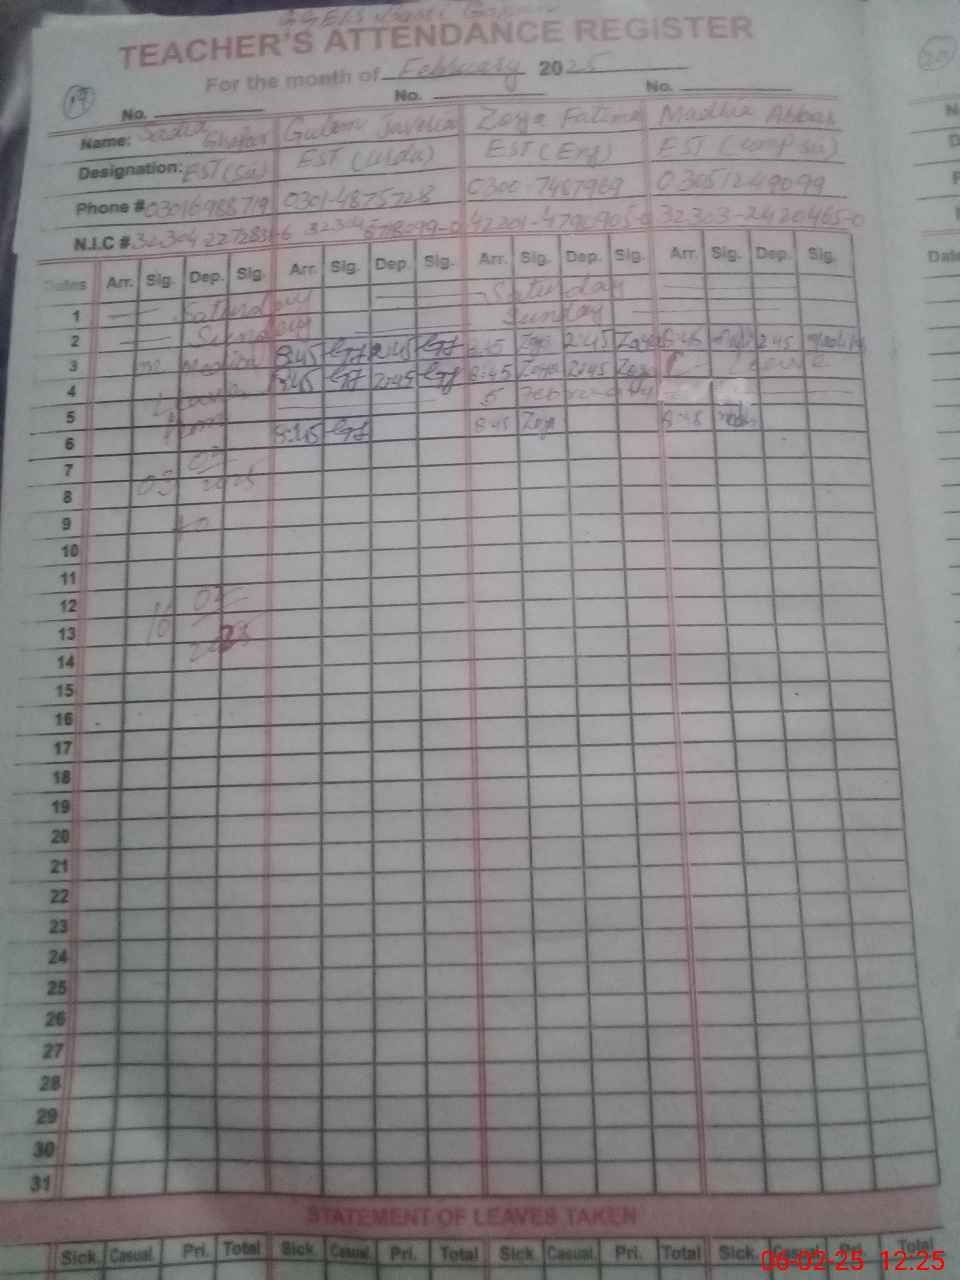 TEACHER'S ATTENDANCE REGISTER
For the month of February 2025
19
No. No. No.
Name: Sadia Ghafar Gulam Javelia Zoya Fatima Madiha Abbas
Designation: EST (Sci) EST (Urdu) EST (Eng) EST (comp sci)
Phone # 03016988719 0301-4875728 0300-7487969 030512-49099
N.I.C #
Dates Arr. Sig. Dep. Sig. Arr. Sig. Dep. Sig. Arr. Sig. Dep. Sig. Arr. Sig. Dep. Sig.
1 Saturday Saturday
2 Sunday Sunday
3 8:45 2:45 8:45 Zoya 2:45 Zoya 8:45 2:45
4 8:45 2:45 8:45 Zoya 2:45 Zoya Leave
5 Leave 5 February
6 from 8:45 8:45 Zoya 8:45
7 02
8 03 2025
9 to
10
11
12 05
13 16 2025
14
15
16
17
18
19
20
21
22
23
24
25
26
27
28
29
30
31
STATEMENT OF LEAVES TAKEN
Sick. Casual. Pri. Total Sick. Casual. Pri. Total Sick. Casual. Pri. Total Sick. Casual. Pri. Total
06-02-25 12:25